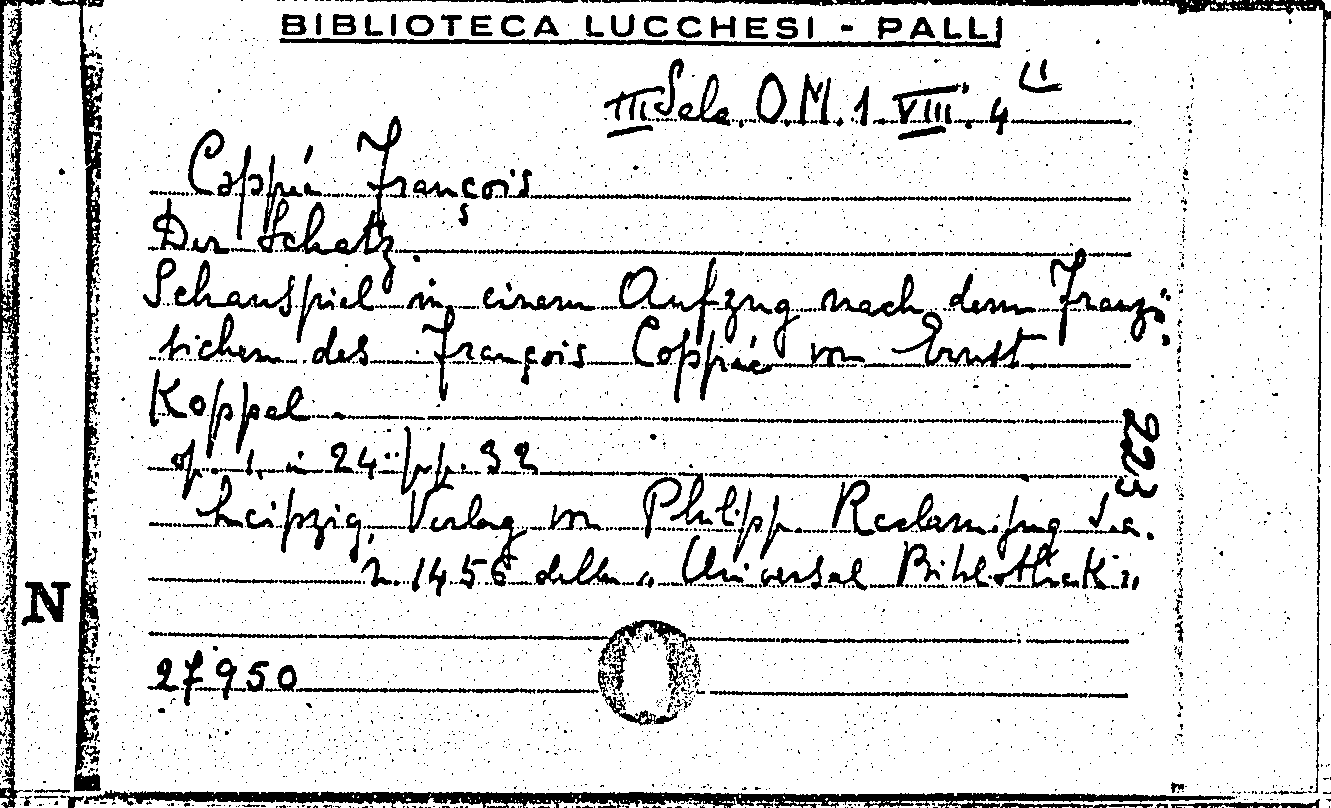 BIBLIOTECA LUCCHESI - PALLI
III Sala. O.M. 1. VIII. 4
Coppée François
Der Schatz.
Schauspiel in einem Aufzug nach dem Franzö-
sichen des François Coppée von Ernst
Koppel.
op. 1. in 24° pp. 32
223
Leipzig, Verlag von Philipp Reclam jung s.a.
n. 1456 della "Universal Bibliothek"
N
27950